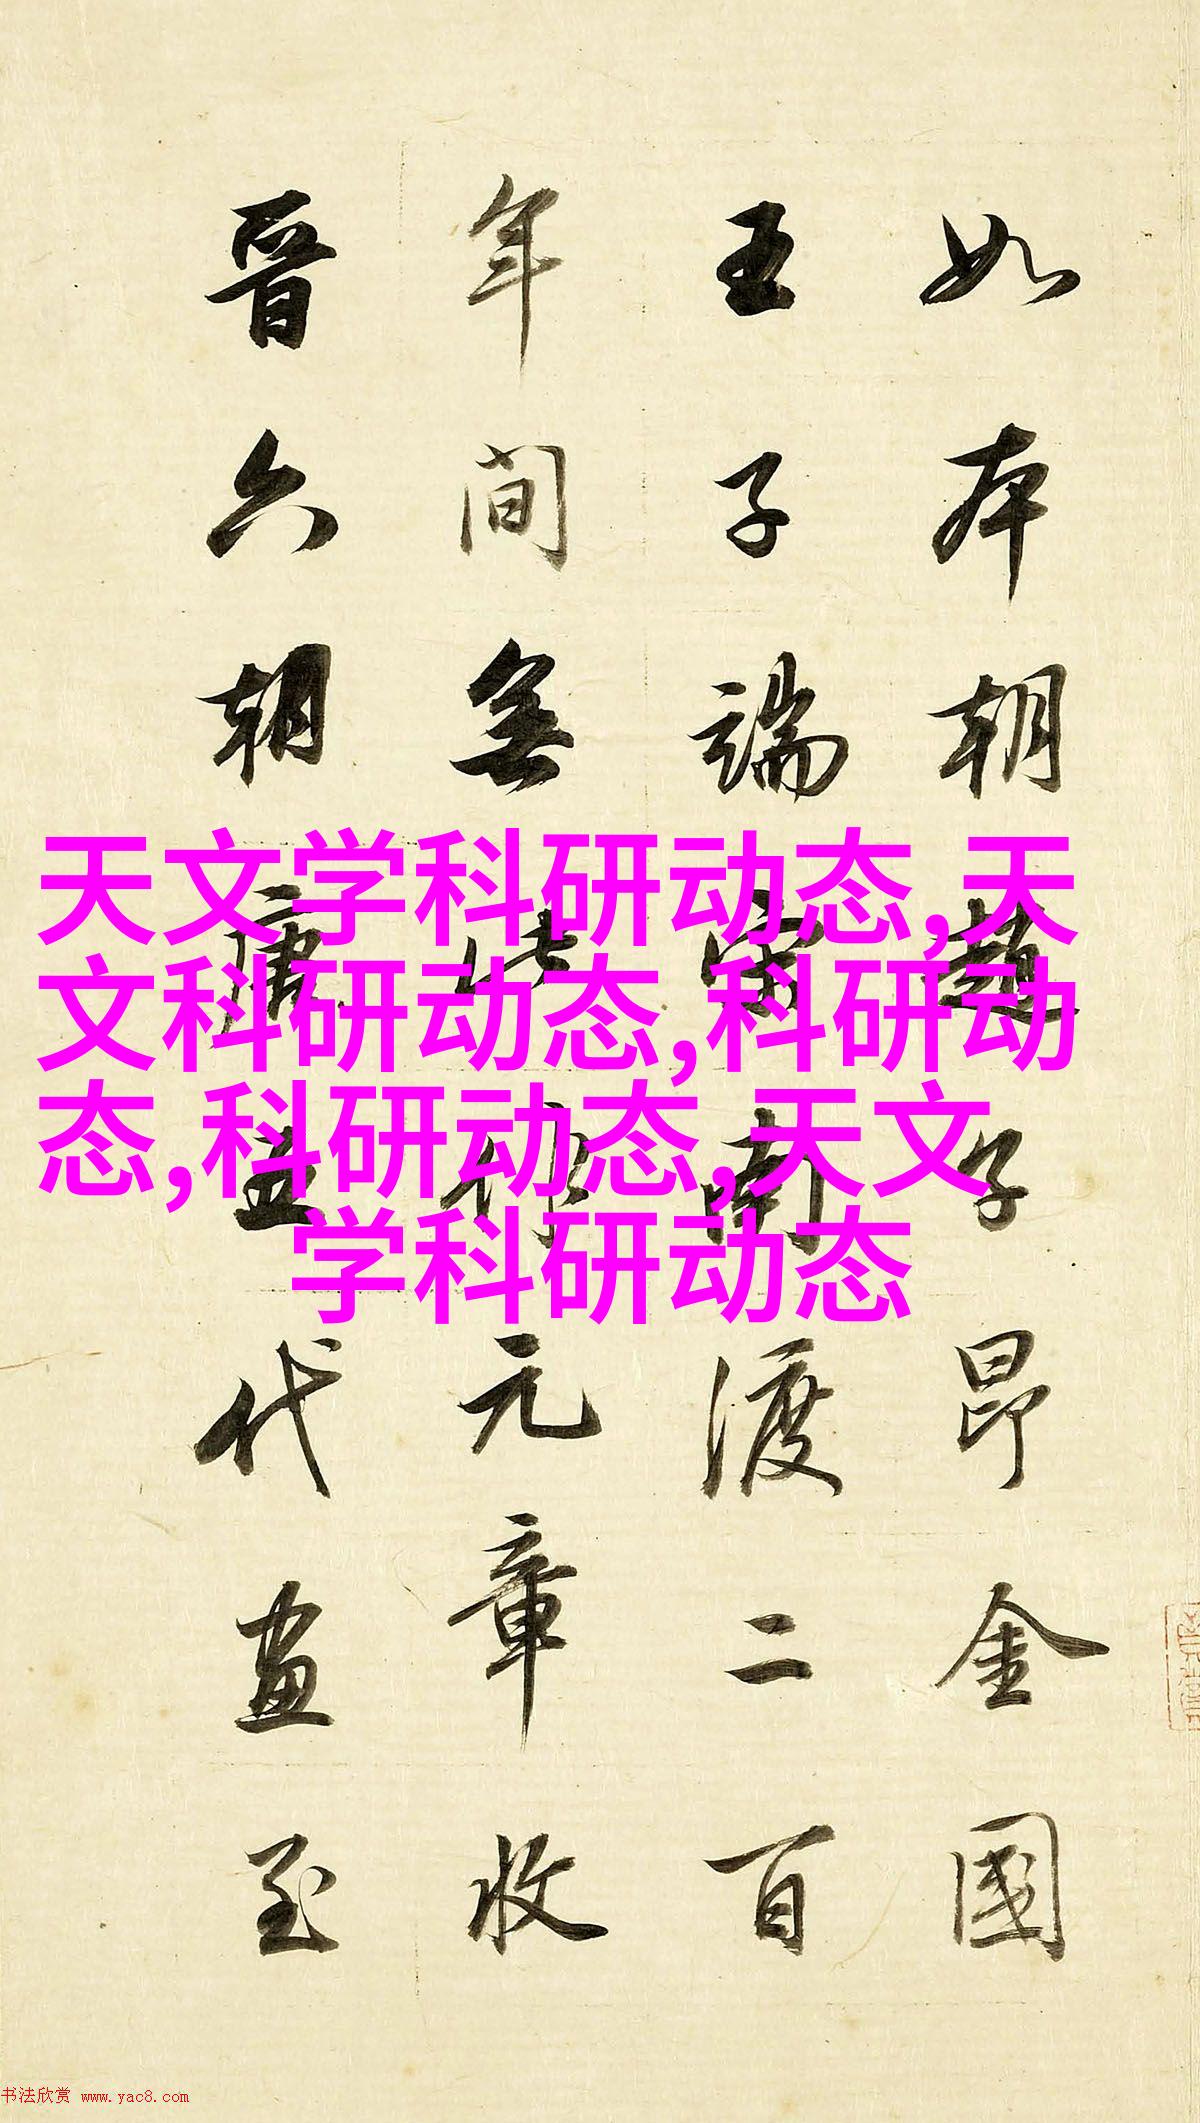 如本朝趙子昂金國
王子端宋南渡二百
年間無此作元章收
晉六朝唐五代畫至
天文学科研动态,天
文科研动态,科研动
态,科研动态,天文
学科研动态
书法欣赏 www.yac8.com